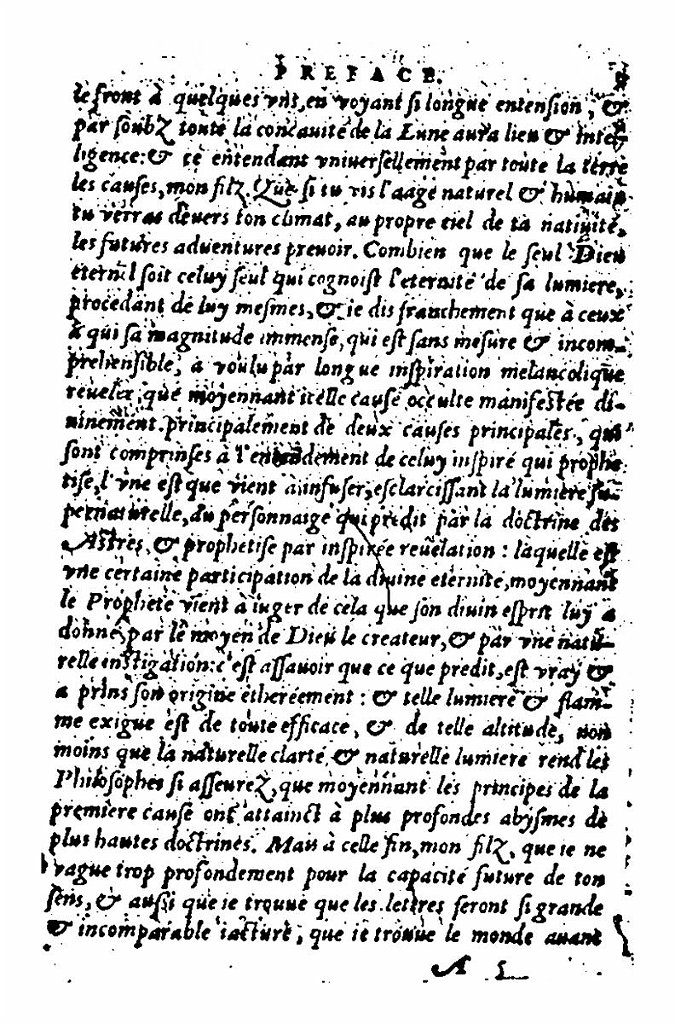 PREFACE.
le front à quelques vns, en voyant si longue extension, &
par soubz toute la concauité de la Lune aura lieu & intel-
ligence: & ce entendant vniuersellement par toute la terre
les causes, mon filz. Que si tu vis l'aage naturel & humain
tu verras deuers ton climat, au propre ciel de ta natiuité,
les futures aduentures preuoir. Combien que le seul Dieu
eternel soit celuy seul qui cognoist l'eternité de sa lumiere,
procedant de luy mesmes, & ie dis franchement que à ceux
à qui sa magnitude immense, qui est sans mesure & incom-
prehensible, a voulu par longue inspiration melancolique
reueler, que moyennant icelle cause occulte manifestée di-
uinement. principalement de deux causes principales, qui
sont comprinses à l'entendement de celuy inspiré qui prophe
tise, l'vne est que vient à infuser, esclarcissant la lumiere su-
pernaturelle, du personnaige qui predit par la doctrine des
Astres, & prophetise par inspirée reuelation: laquelle est
vne certaine participation de la diuine eternité, moyennant
le Prophete vient à iuger de cela que son diuin esprit luy a
donné par le moyen de Dieu le createur, & par vne natu-
relle instigation: c'est assauoir que ce que predit, est vray &
a prins son origine ethereement: & telle lumiere & flam-
me exigue est de toute efficace, & de telle altitude, non
moins que la naturelle clarté & naturelle lumiere rend les
Philosophes si asseurez, que moyennant les principes de la
premiere cause ont attainct à plus profondes abysmes de
plus hautes doctrines. Mais à celle fin, mon filz, que ie ne
vague trop profondement pour la capacité future de ton
sens, & aussi que ie trouue que les lettres seront si grande
& incomparable iacture, que ie trouue le monde auant
A 5